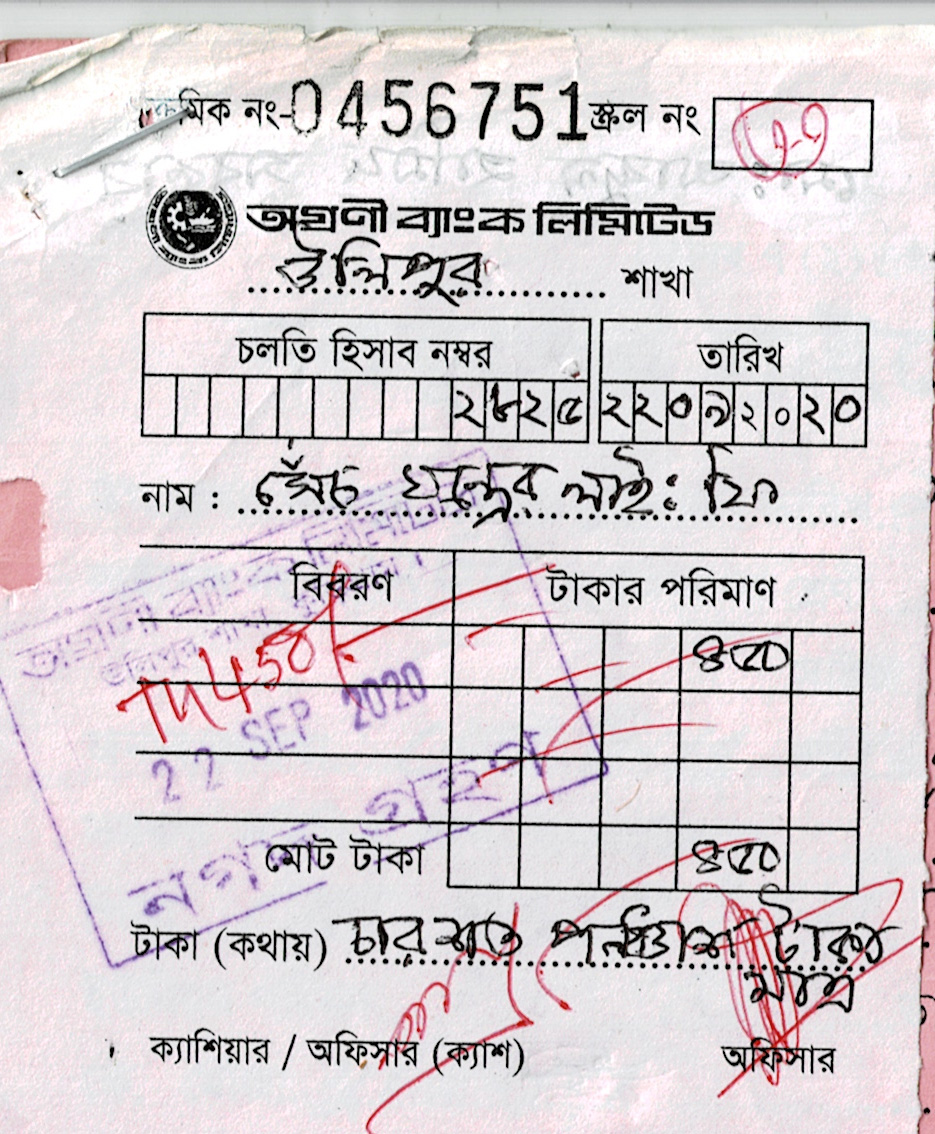 ক্রমিক নং-0456751 স্ক্রল নং
অগ্রণী ব্যাংক লিমিটেড
উলিপুর শাখা
চলতি হিসাব নম্বর তারিখ
২৮২৫ ২২০৯২০২০
নাম : সেঁচ যন্ত্রের লাই: ফি
বিবরণ টাকার পরিমাণ
অগ্রণী ব্যাংক লিমিটেড
উলিপুর শাখা
450/- ৪৫০
22 SEP 2020
নগদ গ্রহণ
মোট টাকা ৪৫০
টাকা (কথায়) চার শত পনঞ্চাশ টাকা
মাত্র
ক্যাশিয়ার / অফিসার (ক্যাশ) অফিসার